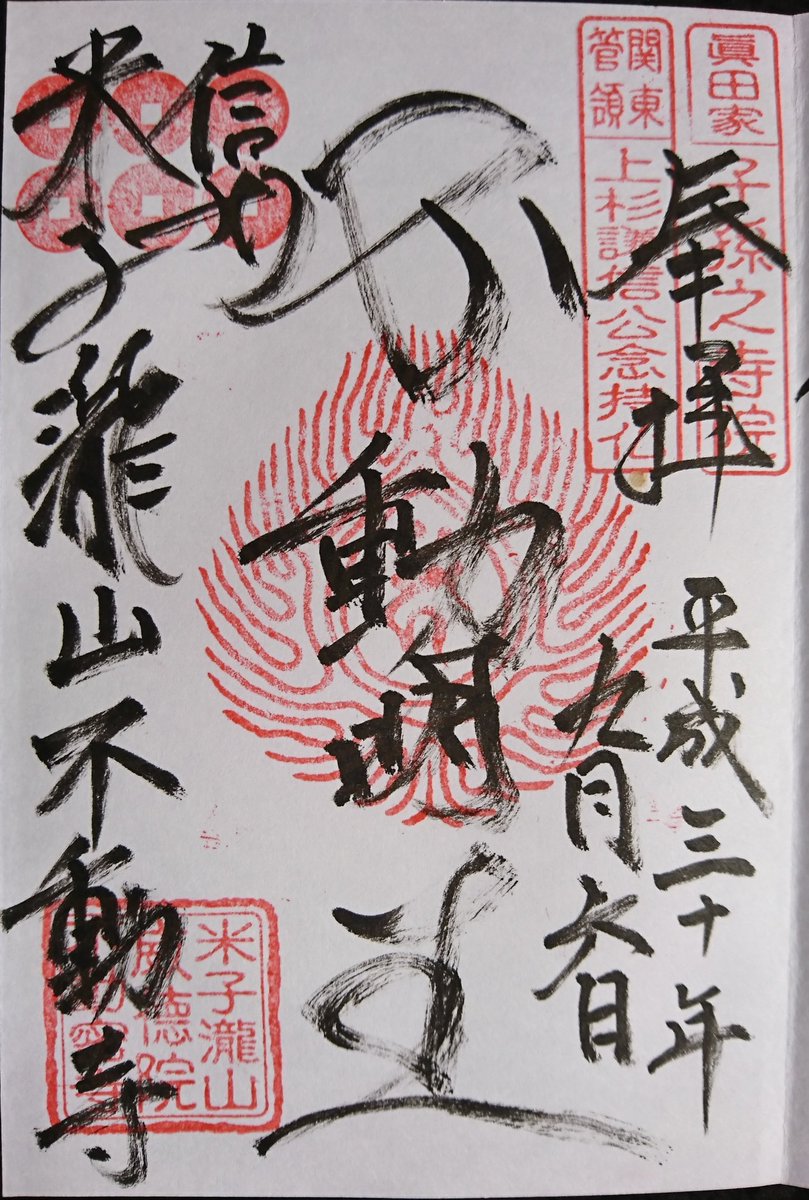 眞田家
子孫之寺院
関東
管領
上杉謙信公念持仏
奉拝
平成三十年
九月六日
不動明王
信州
米子瀧山不動寺
米子瀧山
威徳院